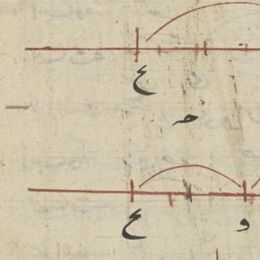 ع
ح
ع و